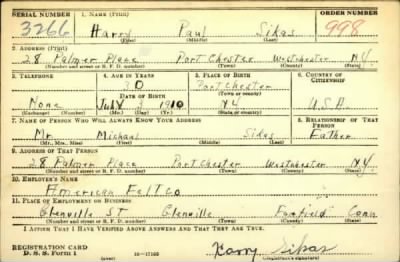 SERIAL NUMBER
1. NAME (Print)
ORDER NUMBER
3266
Harry Paul Sikas
998
(First) (Middle) (Last)
2. ADDRESS (Print)
28 Palmer Place Port Chester Westchester N.Y.
(Number and street or R. F. D. number) (Town) (County) (State)
3. TELEPHONE
4. AGE IN YEARS
5. PLACE OF BIRTH
6. COUNTRY OF CITIZENSHIP
30
Port Chester
DATE OF BIRTH
(Town or county)
None
July 1910
N.Y.
U.S.A.
(Mo.) (Day) (Yr.)
(State or country)
7. NAME OF PERSON WHO WILL ALWAYS KNOW YOUR ADDRESS
8. RELATIONSHIP OF THAT PERSON
Mr. Michael Sikas
Father
(Mr., Mrs., Miss) (First) (Middle) (Last)
9. ADDRESS OF THAT PERSON
28 Palmer Place Port Chester Westchester N.Y.
(Number and street or R. F. D. number) (Town) (County) (State)
10. EMPLOYER'S NAME
American Felt Co
11. PLACE OF EMPLOYMENT OR BUSINESS
Glenville ST. Glenville Fairfield Conn
(Number and street or R. F. D. number) (Town) (County) (State)
I AFFIRM THAT I HAVE VERIFIED ABOVE ANSWERS AND THAT THEY ARE TRUE.
REGISTRATION CARD
D. S. S. Form 1
(over)
16—17105
Harry Sikas
(Registrant's signature)